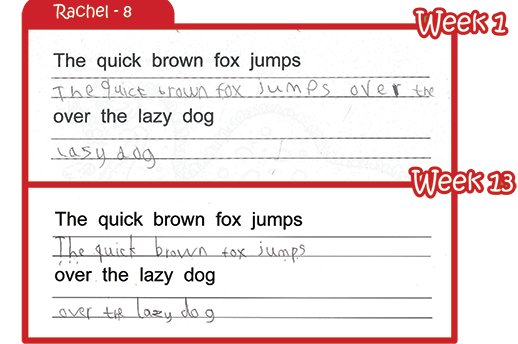 Rachel - 8
Week 1
The quick brown fox jumps
The quick brown fox jumps over the
over the lazy dog
lasy dog
Week 13
The quick brown fox jumps
The quick brown fox jumps
over the lazy dog
over the lazy dog